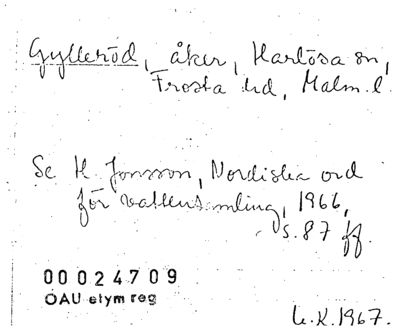 Gylleröd, åker, Harlösa sn,
Frosta hd, Malm. l.
Se H. Jonsson, Nordiska ord
för vattensamling, 1966,
s. 87 ff.
00024709
OAU etym reg
U.K. 1967.